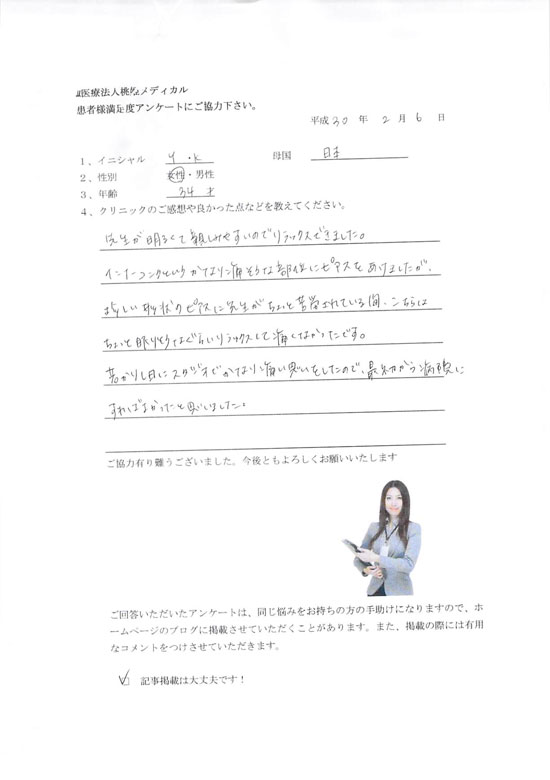 医療法人桃 メディカル
患者様満足度アンケートにご協力下さい。
平成30年 2月 6日
1、イニシャル Y・K 母国 日本
2、性別 女性・男性
3、年齢 34才
4、クリニックのご感想や良かった点などを教えてください。
先生が明るくて親しみやすいのでリラックスできました。
インナーコンクというかなり痛そうな部位にピアスをあけましたが、
難しい形状のピアスに先生がちょっと苦労されている間、こちらは
ちょっと眠りそうなぐらいリラックスして痛くなかったです。
若かりし日にスタジオでかなり痛い思いをしたので、最初から病院に
すればよかったと思いました。
ご協力有り難うございました。今後ともよろしくお願いいたします
ご回答いただいたアンケートは、同じ悩みをお持ちの方の手助けになりますので、ホ
ームページのブログに掲載させていただくことがあります。また、掲載の際には有用
なコメントをつけさせていただきます。
記事掲載は大丈夫です！